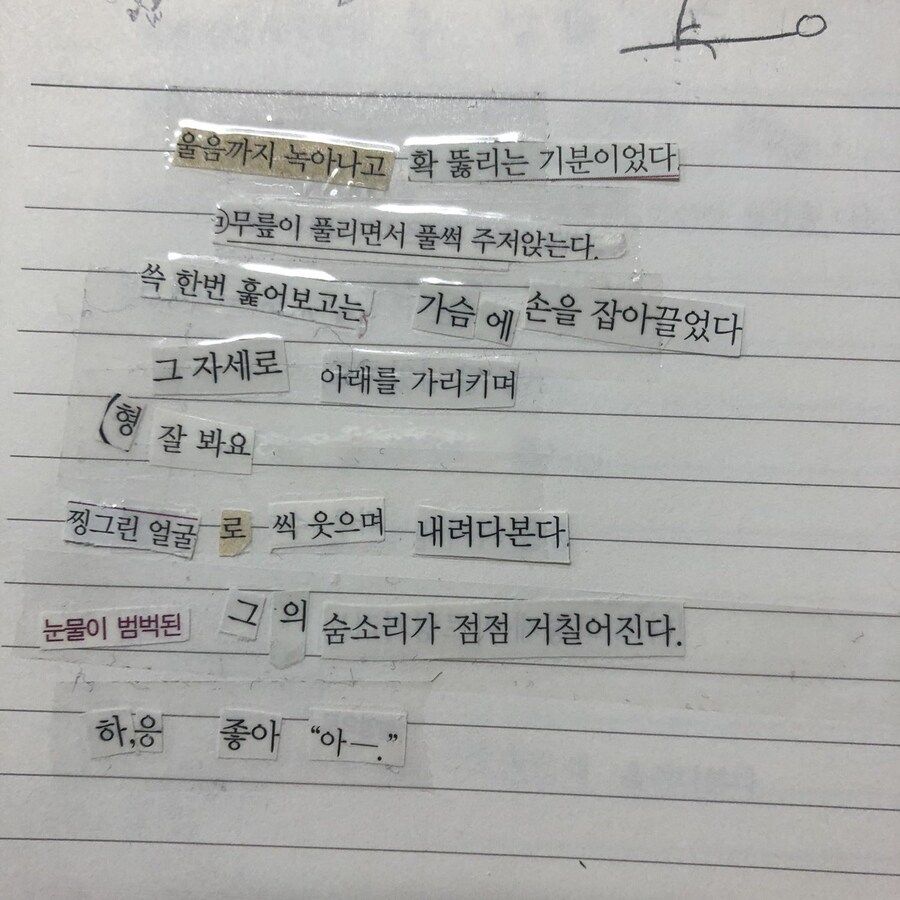 울음까지 녹아나고 확 뚫리는 기분이었다
무릎이 풀리면서 풀썩 주저앉는다.
쓱 한번 훑어보고는 가슴에 손을 잡아끌었다
그 자세로 아래를 가리키며
(형 잘 봐요
찡그린 얼굴로 씩 웃으며 내려다본다.
눈물이 범벅된 그의 숨소리가 점점 거칠어진다.
하,응 좋아 “아—.”